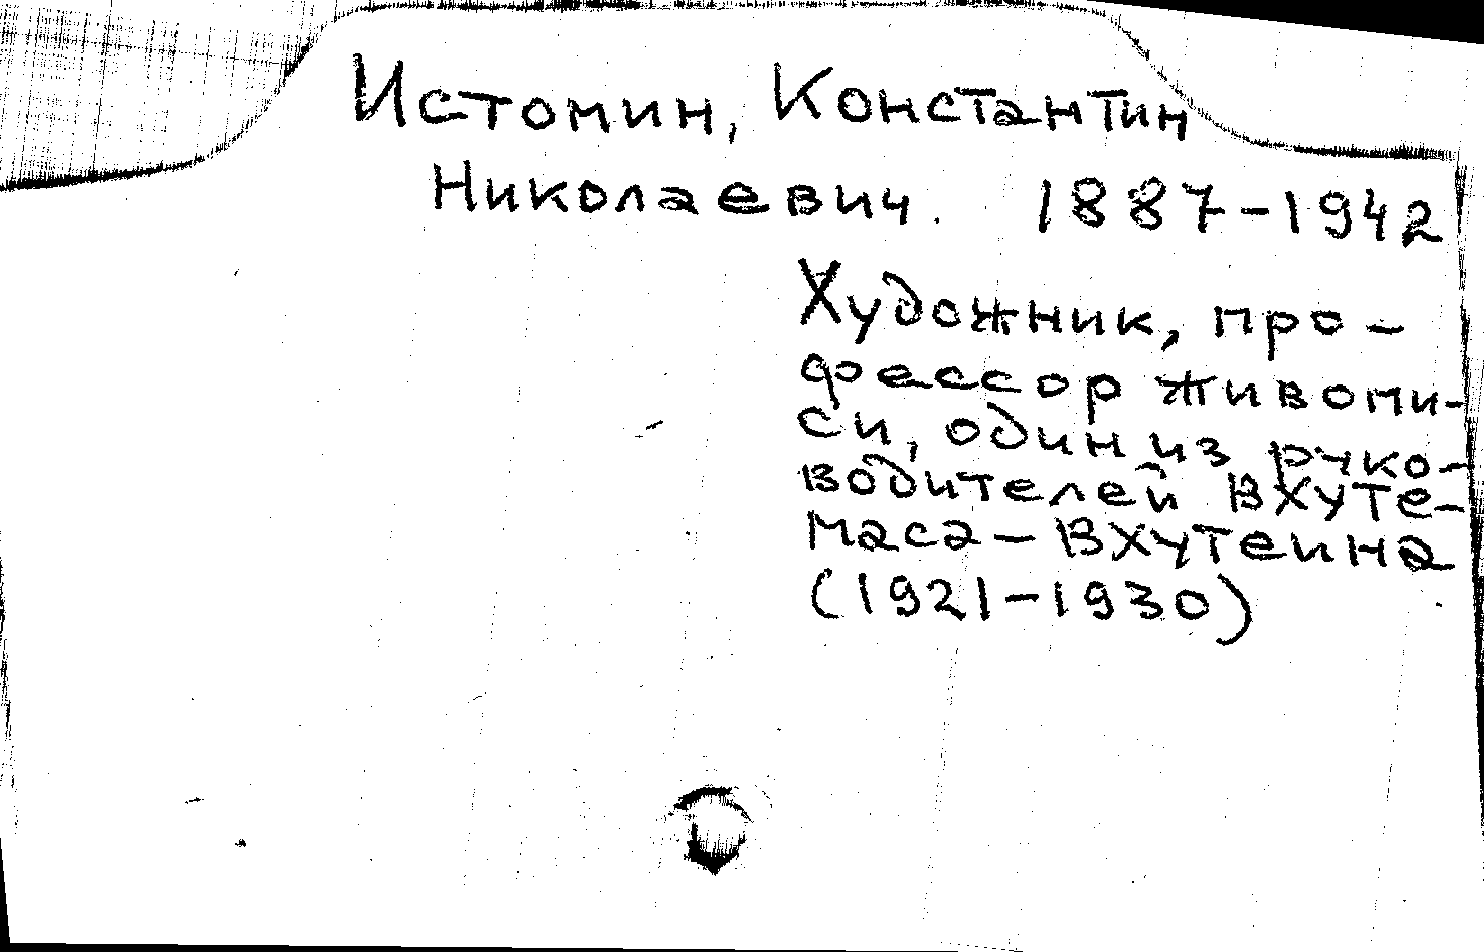 Истомин, Константин
Николаевич. 1887-1942
Художник, про-
фессор живопи-
си, один из руко-
водителей Вхуте-
маса - Вхутеина
(1921-1930)